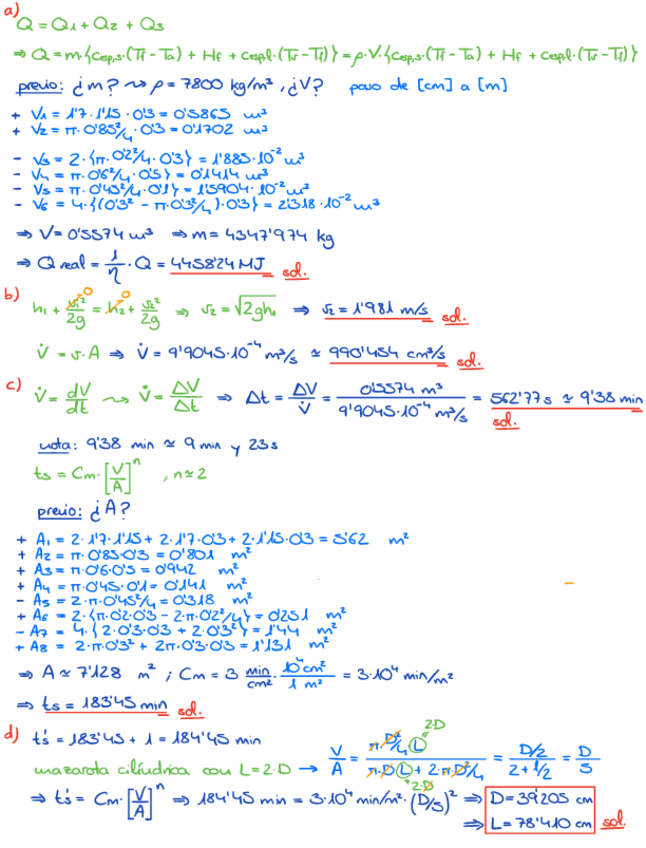 a)
Q = Q1 + Q2 + Q3
⇒ Q = m·{cesp,s·(Tf - Ta) + Hf + cesp,l·(Tv - Tf)} = ρ·V·{cesp,s·(Tf - Ta) + Hf + cesp,l·(Tv - Tf)}
previo: ¿m? ⇝ ρ = 7800 kg/m³, ¿V? paso de [cm] a [m]
+ V1 = 1'7·1'15·0'3 = 0'5865 m³
+ V2 = π·0'85²/4·0'3 = 0'1702 m³
- V3 = 2·{π·0'2²/4·0'3} = 1'885·10⁻² m³
- V4 = π·0'6²/4·0'5 = 0'1414 m³
- V5 = π·0'45²/4·0'1 = 1'5904·10⁻² m³
- V6 = 4·{(0'3² - π·0'3²/4)·0'3} = 2'318·10⁻² m³
⇒ V = 0'5574 m³ ⇒ m = 4347'974 kg
⇒ Q real = 1/η · Q = 4458'24 MJ sol.
b) h1 + v1²/2g = h2 + v2²/2g ⇒ v2 = √2gh1 ⇒ v2 = 1'981 m/s sol.
V̇ = v·A ⇒ V̇ = 9'9045·10⁻⁴ m³/s ≃ 990'454 cm³/s sol.
c) V̇ = dV/dt ⇝ V̇ = ΔV/Δt ⇒ Δt = ΔV/V̇ = 0'5574 m³ / 9'9045·10⁻⁴ m³/s = 562'77 s ≃ 9'38 min
sol.
nota: 9'38 min ≃ 9 min y 23 s
ts = Cm·[V/A]ⁿ , n ≃ 2
previo: ¿A?
+ A1 = 2·1'7·1'15 + 2·1'7·0'3 + 2·1'15·0'3 = 5'62 m²
+ A2 = π·0'85·0'3 = 0'801 m²
+ A3 = π·0'6·0'5 = 0'942 m²
+ A4 = π·0'45·0'1 = 0'141 m²
- A5 = 2·π·0'45²/4 = 0'318 m²
+ A6 = 2·{π·0'2·0'3 - 2·π·0'2²/4} = 0'251 m²
- A7 = 4·{2·0'3·0'3 + 2·0'3²} = 1'44 m²
+ A8 = 2·π·0'3² + 2π·0'3·0'3 = 1'131 m²
⇒ A ≃ 7'128 m² ; Cm = 3 min/cm² · 10⁴ cm²/1 m² = 3·10⁴ min/m²
⇒ ts = 183'45 min sol.
d) ts' = 183'45 + 1 = 184'45 min
mazarota cilíndrica con L = 2·D → V/A = π·D²/4·L / π·D·L + 2·π·D²/4 = D/2 / 2 + 1/2 = D/5
2·D
2·D
⇒ ts' = Cm·[V/A]ⁿ ⇒ 184'45 min = 3·10⁴ min/m²·(D/5)² ⇒ D = 39'205 cm
⇒ L = 78'410 cm sol.